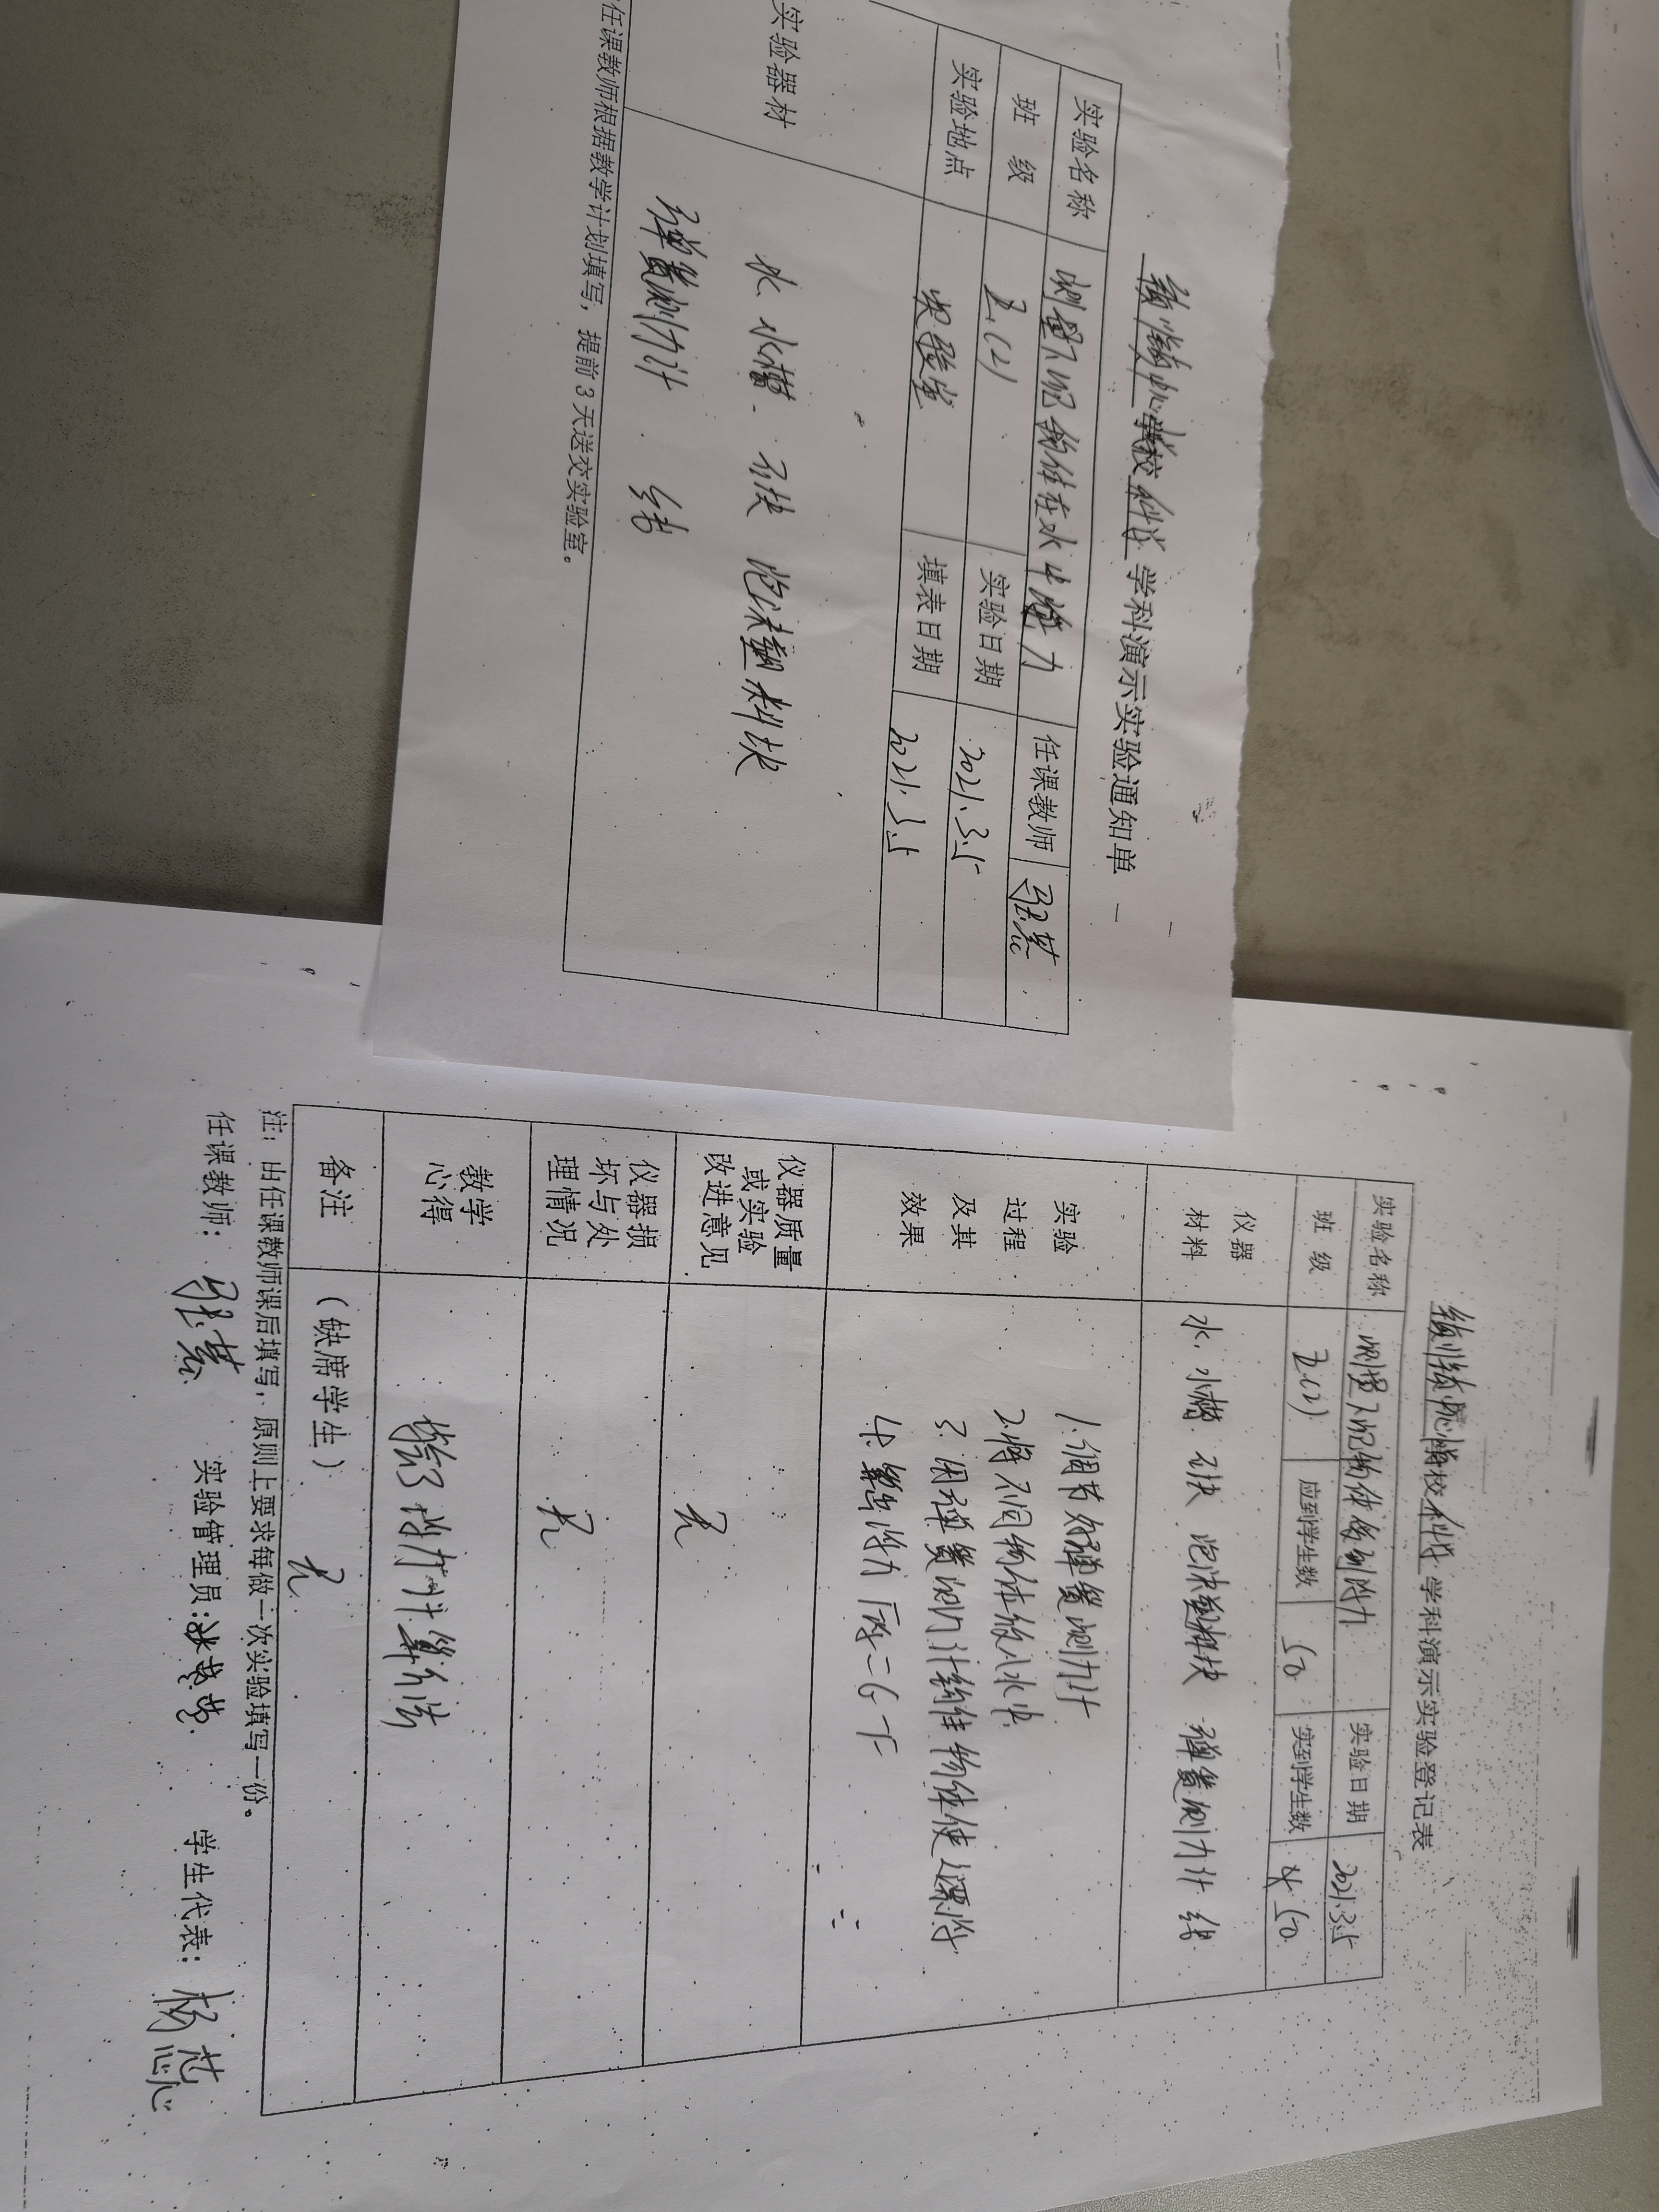 科学 学科演示实验通知单
实验名称 测量下沉物体在水中浮力 任课教师
班 级 五(2) 实验日期 2021.3.5
实验地点 实验室 填表日期 2021.3.5
实验器材
水、水槽、石块 泡沫塑料块
弹簧测力计 线
任课教师根据教学计划填写，提前3天送交实验室。
校科学 学科演示实验登记表
实验名称 测量下沉物体受到浮力 实验日期 2021.3.5
班 级 五(2) 应到学生数 50 实到学生数 50
仪器
材料
水，水槽 石块 泡沫塑料块 弹簧测力计 线
实验
过程
及其
效果
1.调节好弹簧测力计
2.将不同物体放入水中.
3.用弹簧测力计钩住物体使之漂浮
4.算出浮力 F浮=G-F
仪器质量
或实验
改进意见
无
仪器损
坏与处
理情况
无
教学
心得
学会了浮力计算方法
备注 （缺席学生） 无
注：由任课教师课后填写，原则上要求每做一次实验填写一份。
任课教师： 实验管理员: 学生代表：杨